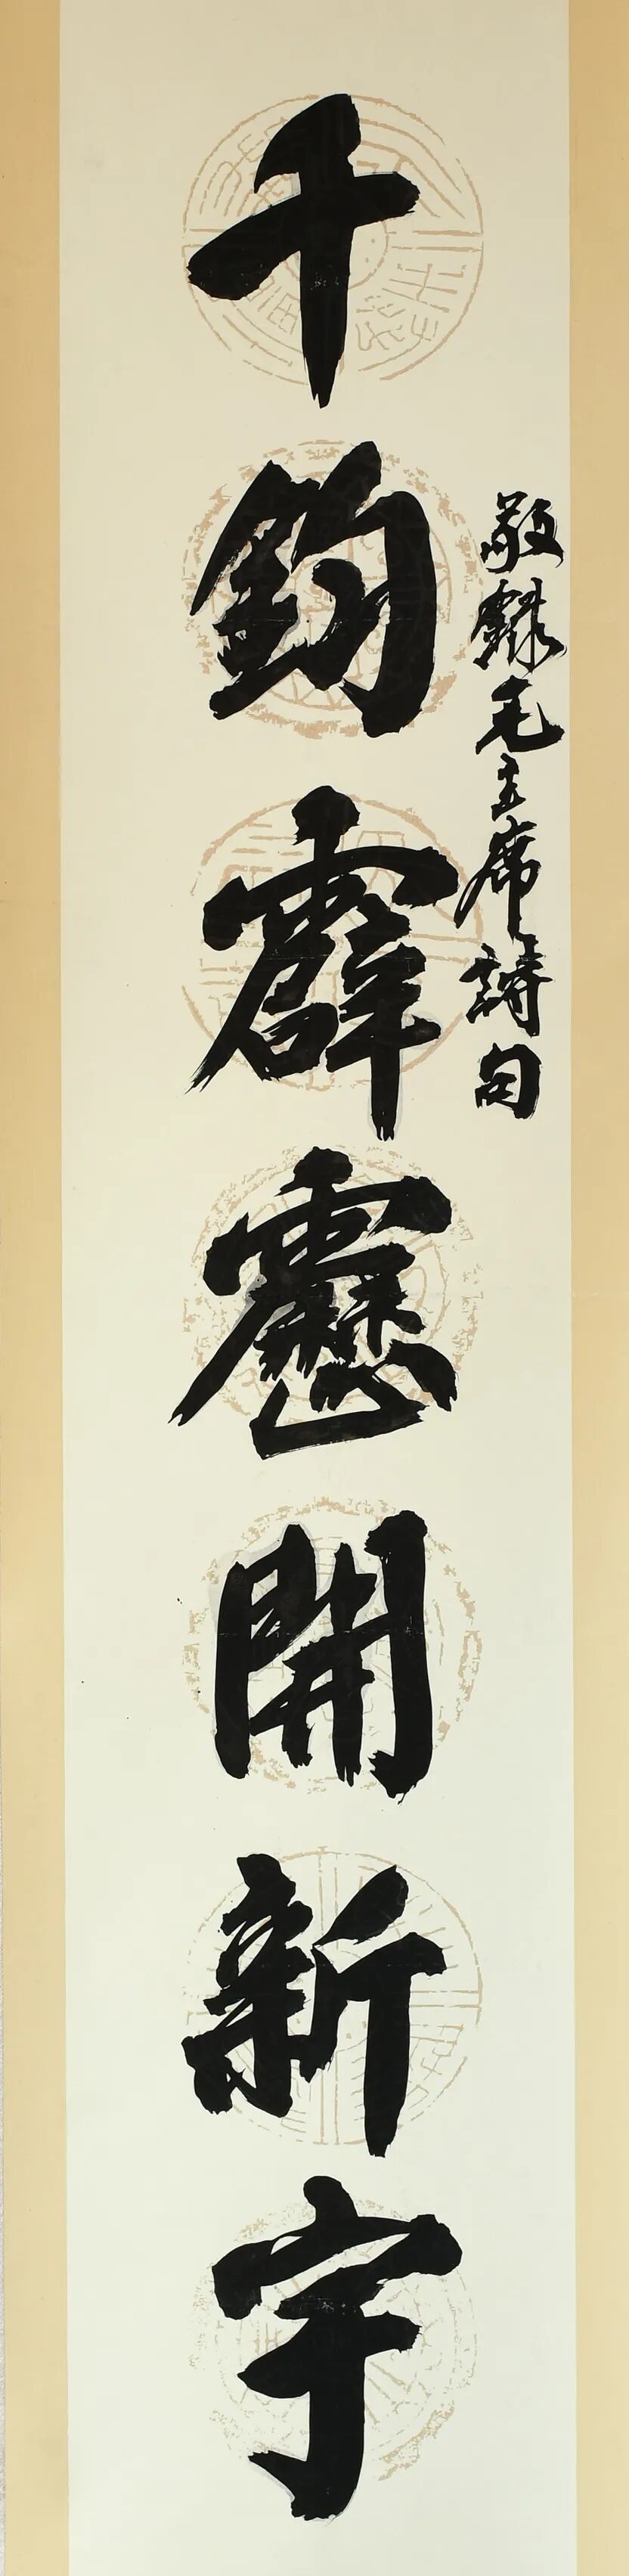 敬録毛主席詩句
千鈞霹靂開新宇